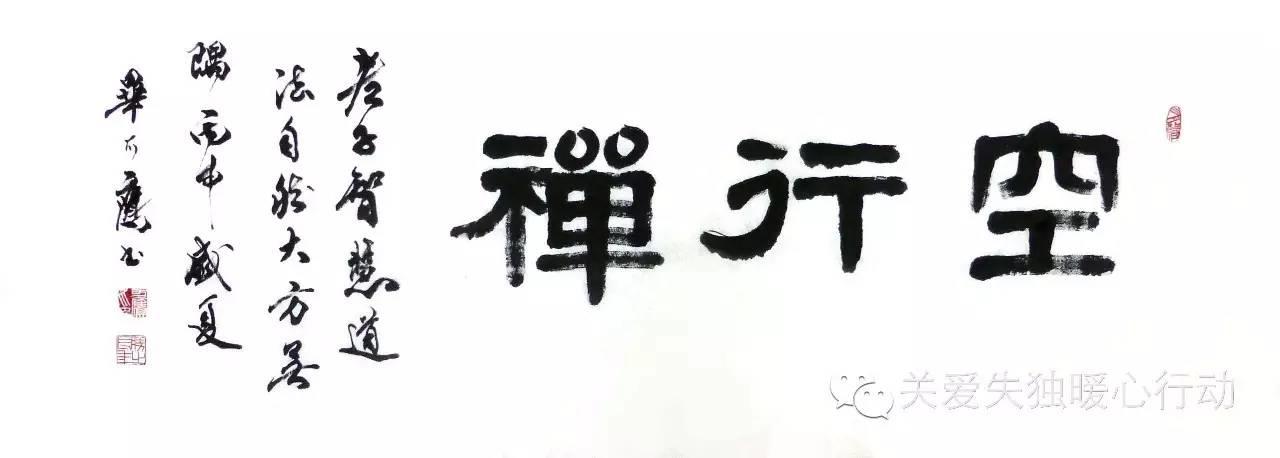 空行禪
老子智慧道
法自然大方無
隅丙申盛夏
華
书
关爱失独暖心行动